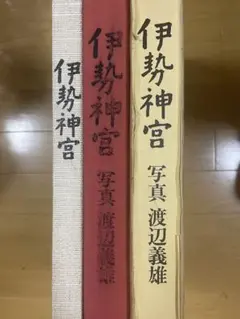 伊勢神宮
伊勢神宮 写真 渡辺義雄
伊勢神宮 写真 渡辺義雄